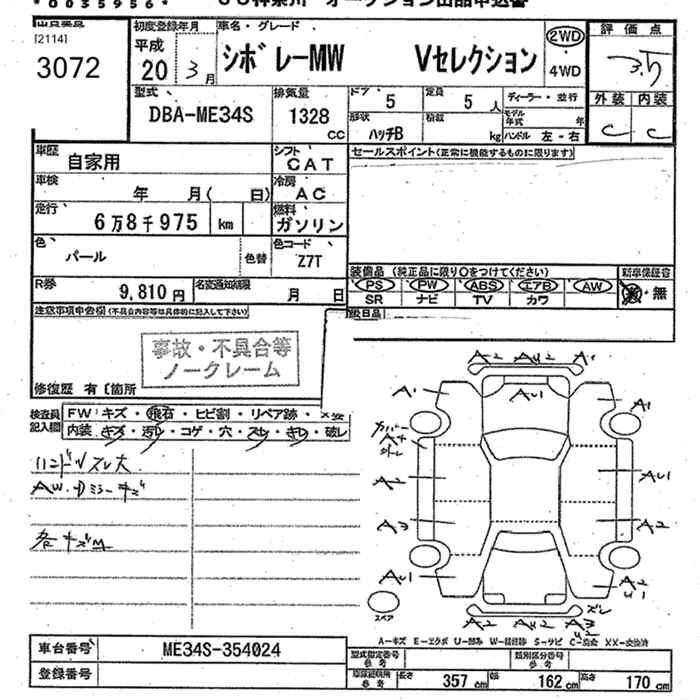 *0035956*
[2114]
3072
初度登録年月
平成
20 3月
車名・グレード
シボレーMW Vセレクション
2WD
・
4WD
評価点
3.5
外装 内装
C C
型式
DBA-ME34S
排気量
1328 cc
ドア
5
定員
5人
ディーラー・並行
形状
ハッチB
積載
kg
モデル年式 年
ハンドル 左・右
車歴
自家用
シフト
CAT
セールスポイント(正常に機能するものに限ります)
車検
年 月( 日)
冷房
AC
走行
6万8千975 km
燃料
ガソリン
色
パール
色替
色コード
Z7T
装備品 (純正品に限り○をつけてください)
新車保証書
PS PW ABS エアB AW
SR ナビ TV カワ
・無
R券
9,810円
名変通知期限
月 日
後日品
注意事項申告欄(不具合内容等は具体的に記入して下さい)
事故・不具合等
ノークレーム
修復歴 有〔箇所
検査員
記入欄
FW:キズ・飛石・ヒビ割・リペア跡・
内装:キズ・汚レ・コゲ・穴・スレ・キレ・破レ
ハンドルスレ大
AW・Dミラーキズ
各キズM
A2 AU2 A1
A1 AU1 A1
カバー
A2 AU1
A3 A2
AU1 A2
U1
スペア
A2 AU2 A3
ズレ
A-キズ E-エクボ U-凹み W-補修跡 S-サビ C-腐食 XX-交換済
車台番号
ME34S-354024
登録番号
型式指定番号
参考
類別区分番号
参考
車検証明所
参考
長さ 357cm 幅 162cm 高さ 170cm